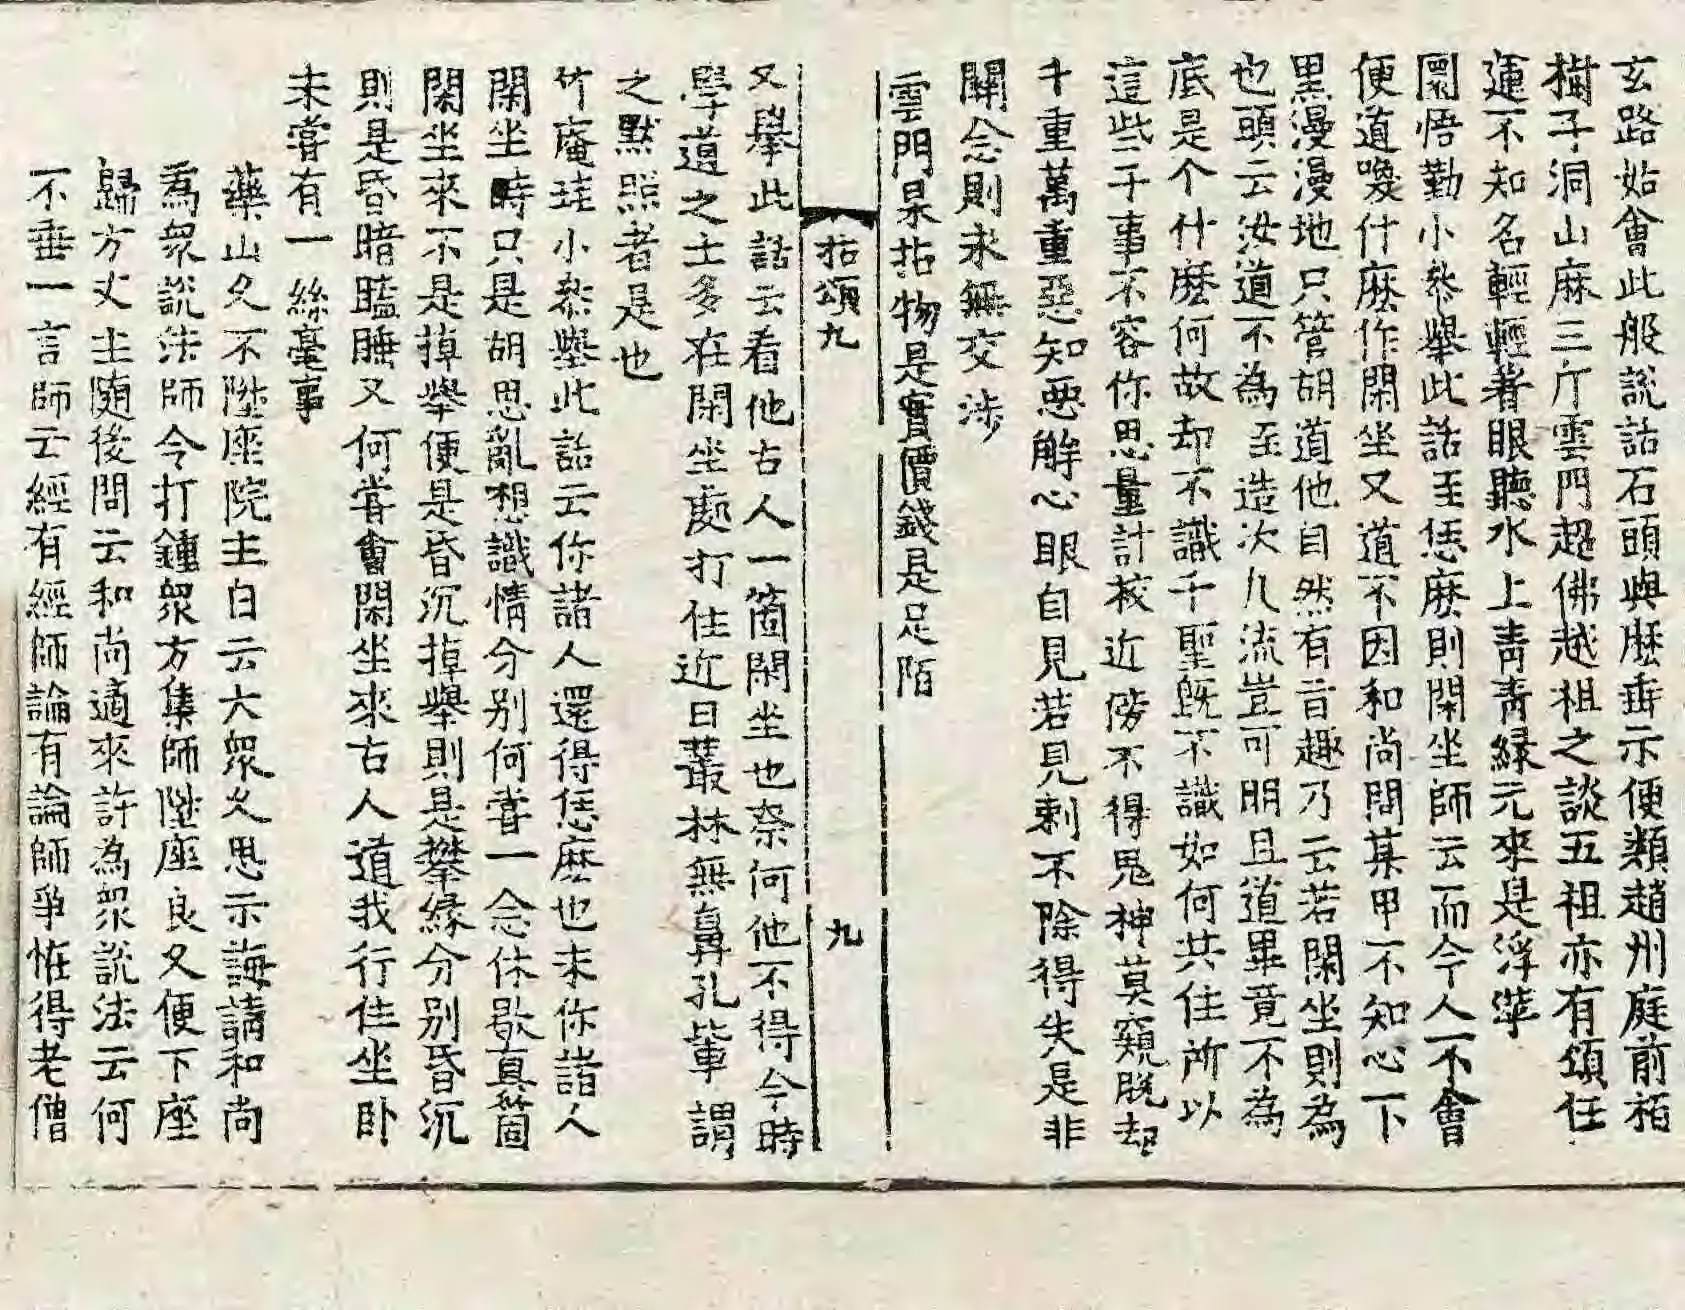 玄路始會此般說話石頭與麽垂示便類趙州庭前栢
樹子洞山麻三斤雲門超佛越祖之談五祖亦有頌任
運不知名輕輕著眼聽水上靑靑緑元來是浮萍
圜悟勤小叅擧此話至恁麽則閑坐師云而今人不會
便道喚什麽作閑坐又道不因和尚問某甲不知心下
黑漫漫地只管胡道他自然有旨趣乃云若閑坐則為
也頭云汝道不為至造次凡流豈可明且道畢竟不為
底是个什麽何故却不識千聖旣不識如何共住所以
這些子事不容你思量計校近傍不得鬼神莫窺脫却
千重萬重惡知惡解心眼自見若見剩不除得失是非
關念則未無交涉
雲門杲拈物是實價錢是足陌
拈頌九 九
又擧此話云看他古人一箇閑坐也奈何他不得今時
學道之士多在閑坐處打住近日叢林無鼻孔輩謂
之默照者是也
竹庵珪小叅擧此話云你諸人還得恁麽也未你諸人
閑坐時只是胡思亂想識情分别何甞一念休歇真箇
閑坐來不是掉擧便是昏沉掉擧則是攀緣分别昏沉
則是昏暗瞌睡又何甞會閑坐來古人道我行住坐卧
未甞有一絲毫事
藥山久不陞座院主白云大衆久思示誨請和尚
爲衆說法師令打鍾衆方集師陞座良久便下座
歸方丈主随後問云和尚適來許為衆說法云何
不垂一言師云經有經師論有論師爭恠得老僧